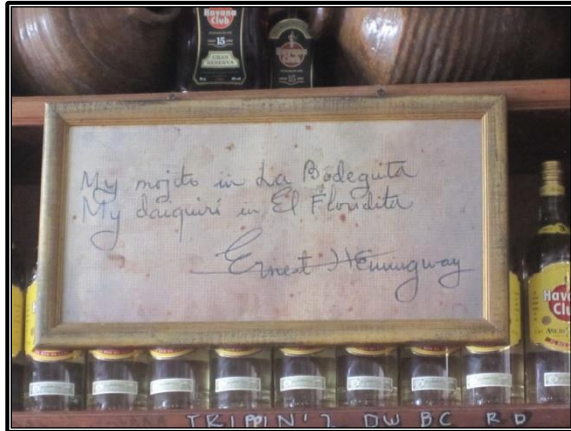 Havana
Club
15
GRAN
RESERVA
15
My mojito in La Bodeguita
My daiquiri in El Floridita
Ernest Hemingway
Havana
Club
AÑEJO
TRIPPIN'2 DW BC RD